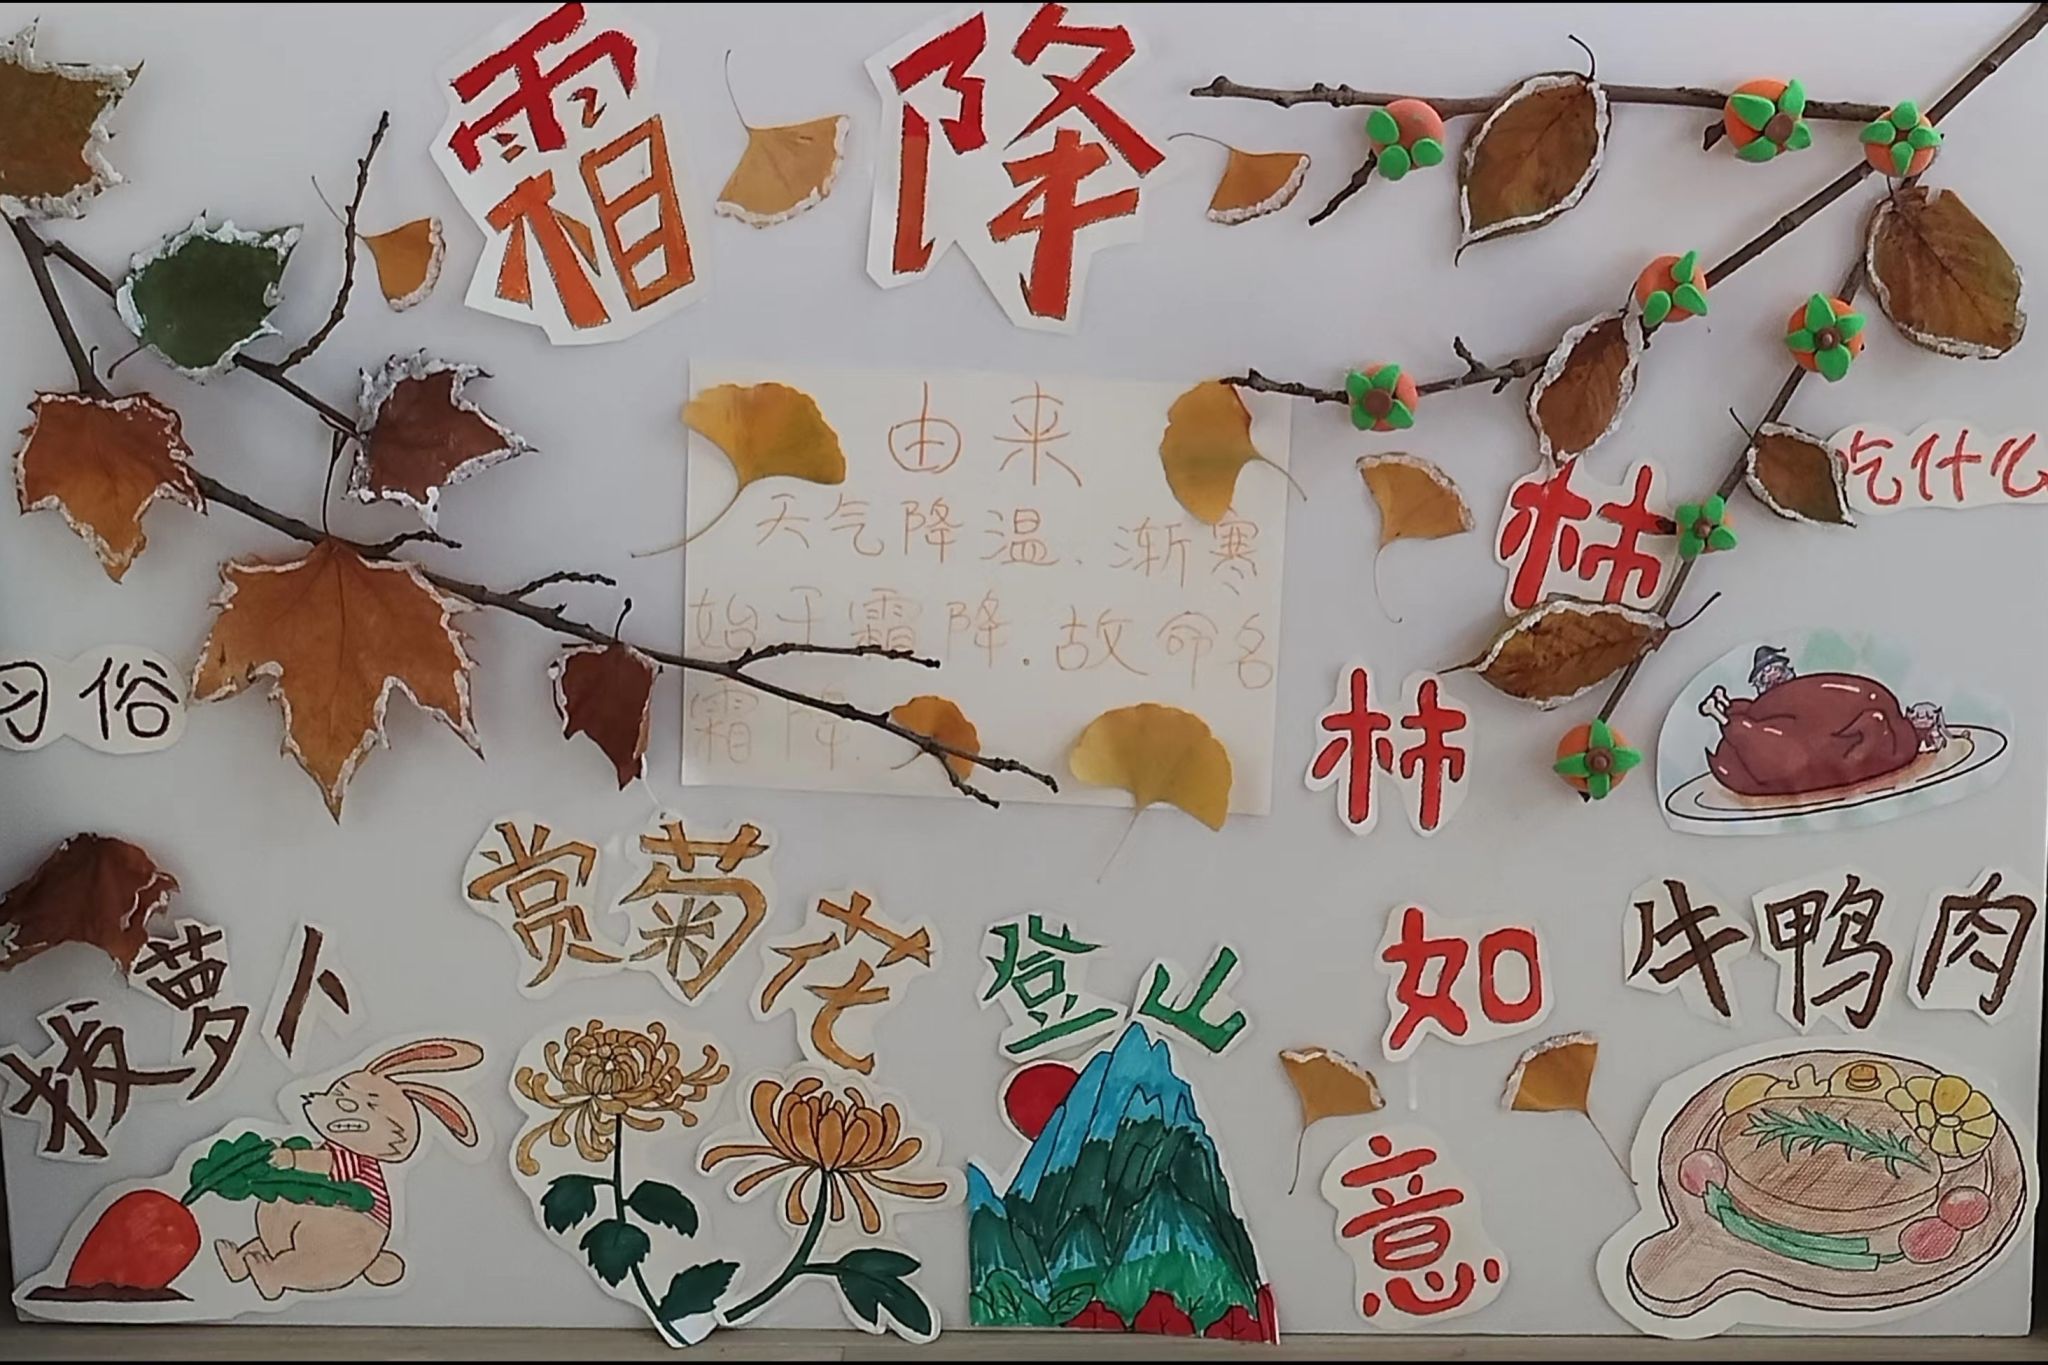 霜降
由来
天气降温、渐寒
始于霜降.故命名
霜降.
吃什么
习俗
柿
柿
如
意
牛鸭肉
拔萝卜
赏菊花
登山